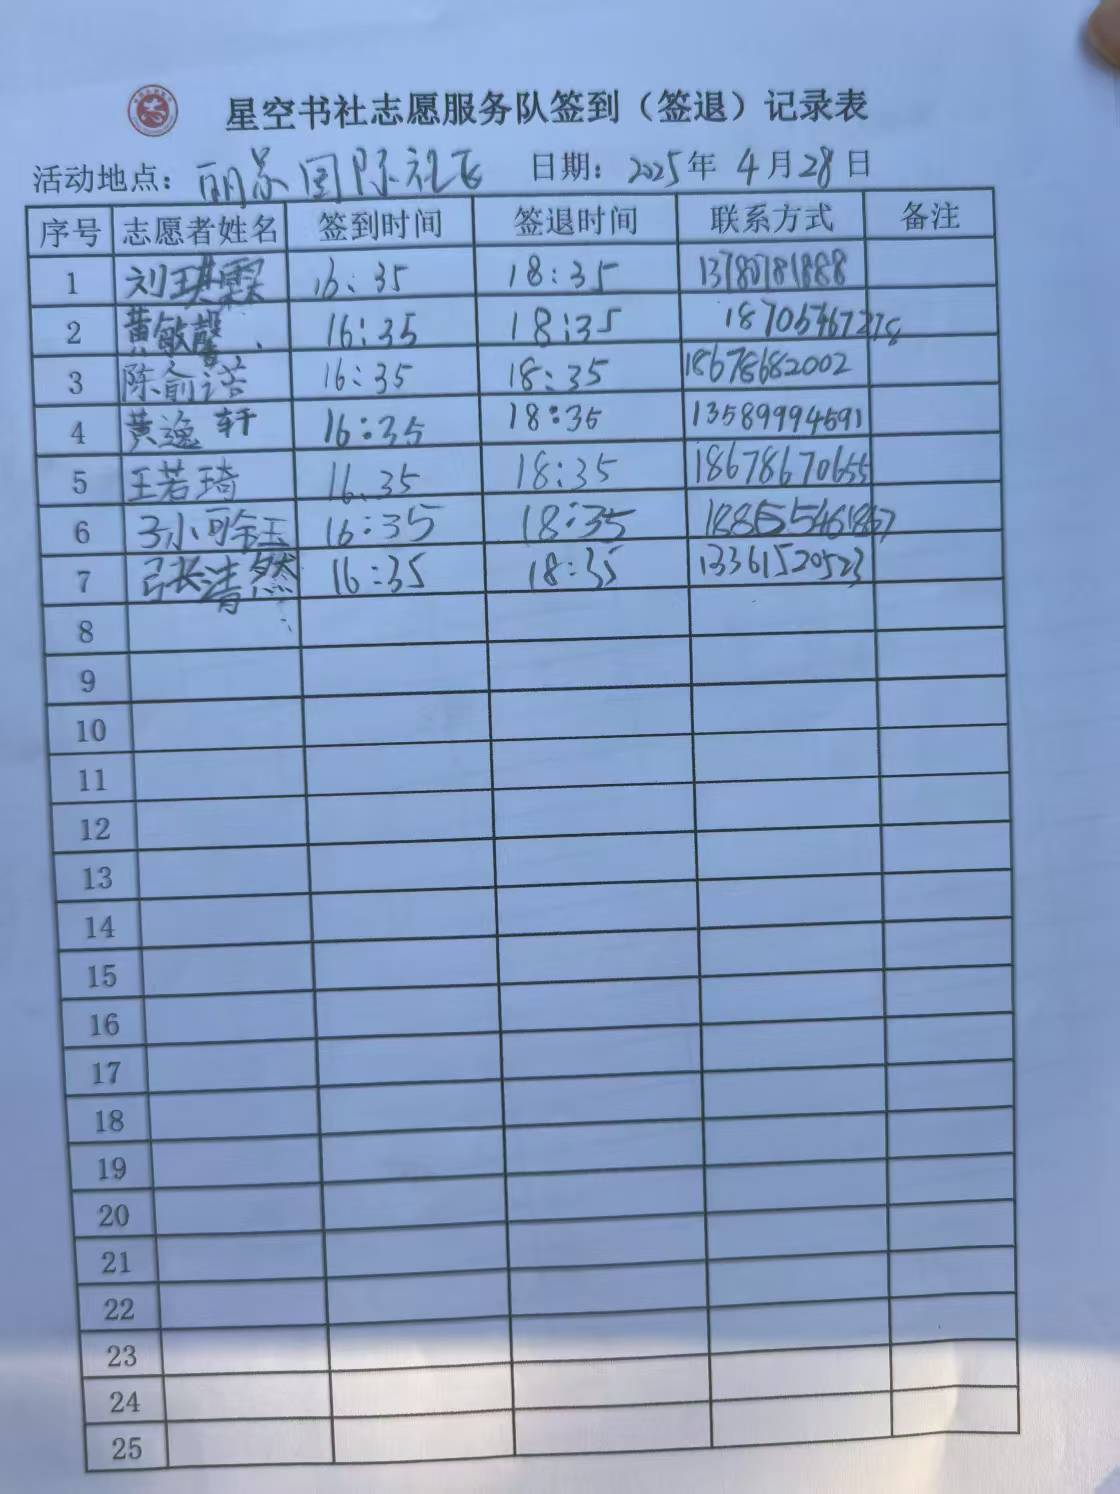 星空书社志愿服务队签到（签退）记录表
活动地点：丽景国际社区 日期：2025年4月28日
序号 志愿者姓名 签到时间 签退时间 联系方式 备注
1 刘琪霖 16:35 18:35 13780781888
2 黄敏馨 16:35 18:35 18705467278
3 陈俞诺 16:35 18:35 18678682002
4 黄逸轩 16:35 18:35 13589994591
5 王若琦 16:35 18:35 18678670655
6 16:35 18:35
7 张清然 16:35 18:35 13361520523
8
9
10
11
12
13
14
15
16
17
18
19
20
21
22
23
24
25